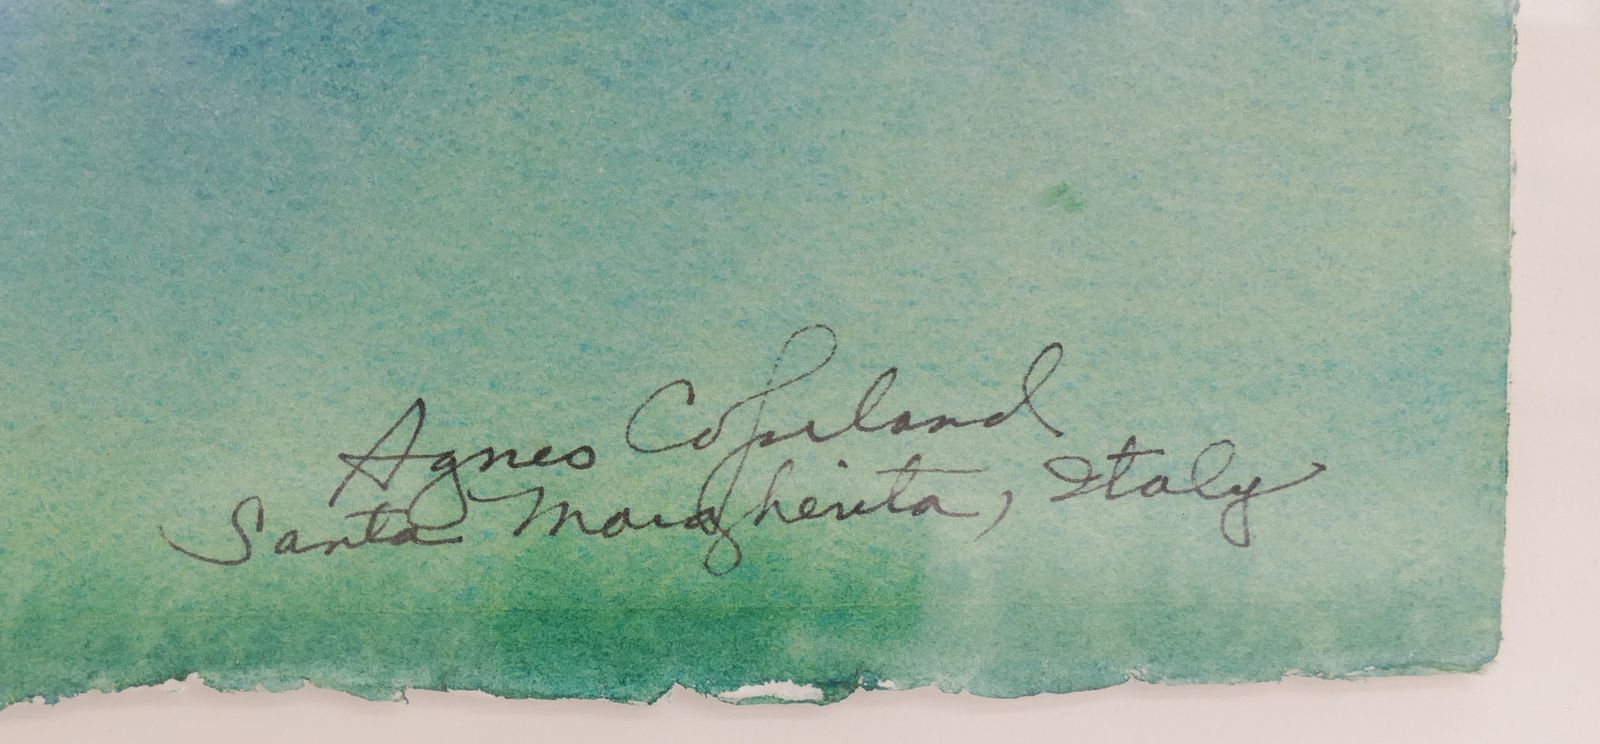 Agnes Copeland
Santa Margherita, Italy